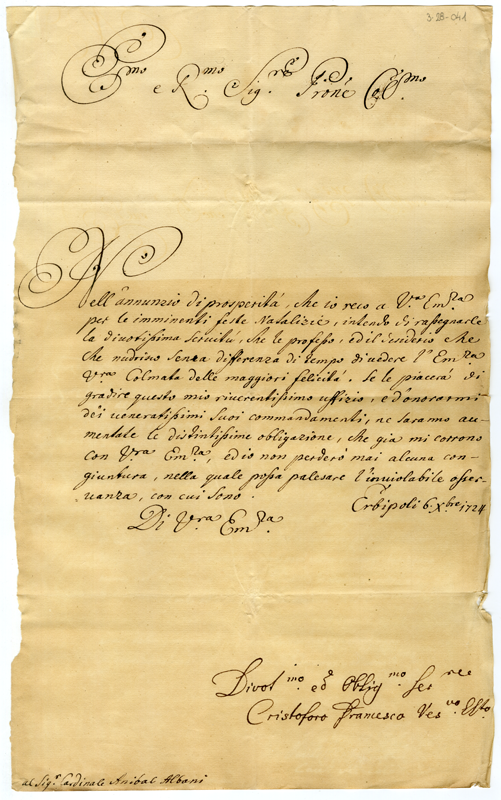 3-28-041
Emo e Rmo Sigre Prone Colmo
Nell'annunzio di prosperità, che io reco a Vra Emza
per le imminenti feste Natalizie, intendo di rassegnarle
la divotissima servitù, che le professo, ed il desiderio che
che nudrisco senza differenza di tempo di vedere l'Emza
Vra Colmata delle maggiori felicità. Se le piacerà di
gradire questo mio riverentissimo uffizio, e d'onorarmi
dei veneratissimi suoi commandamenti, ne saranno au-
mentate le distintissime obligazione, che già mi corrono
con Vra Emza, ed io non perderò mai alcuna con-
giuntura, nella quale possa palesare l'inviolabile osser-
vanza, con cui sono.
Erbipoli 6. Xbre 1724
Di Vra Emza
Divotmo ed Obligmo Serre
Cristoforo Francesco Vesvo
al Sigr Cardinale Anibal Albani